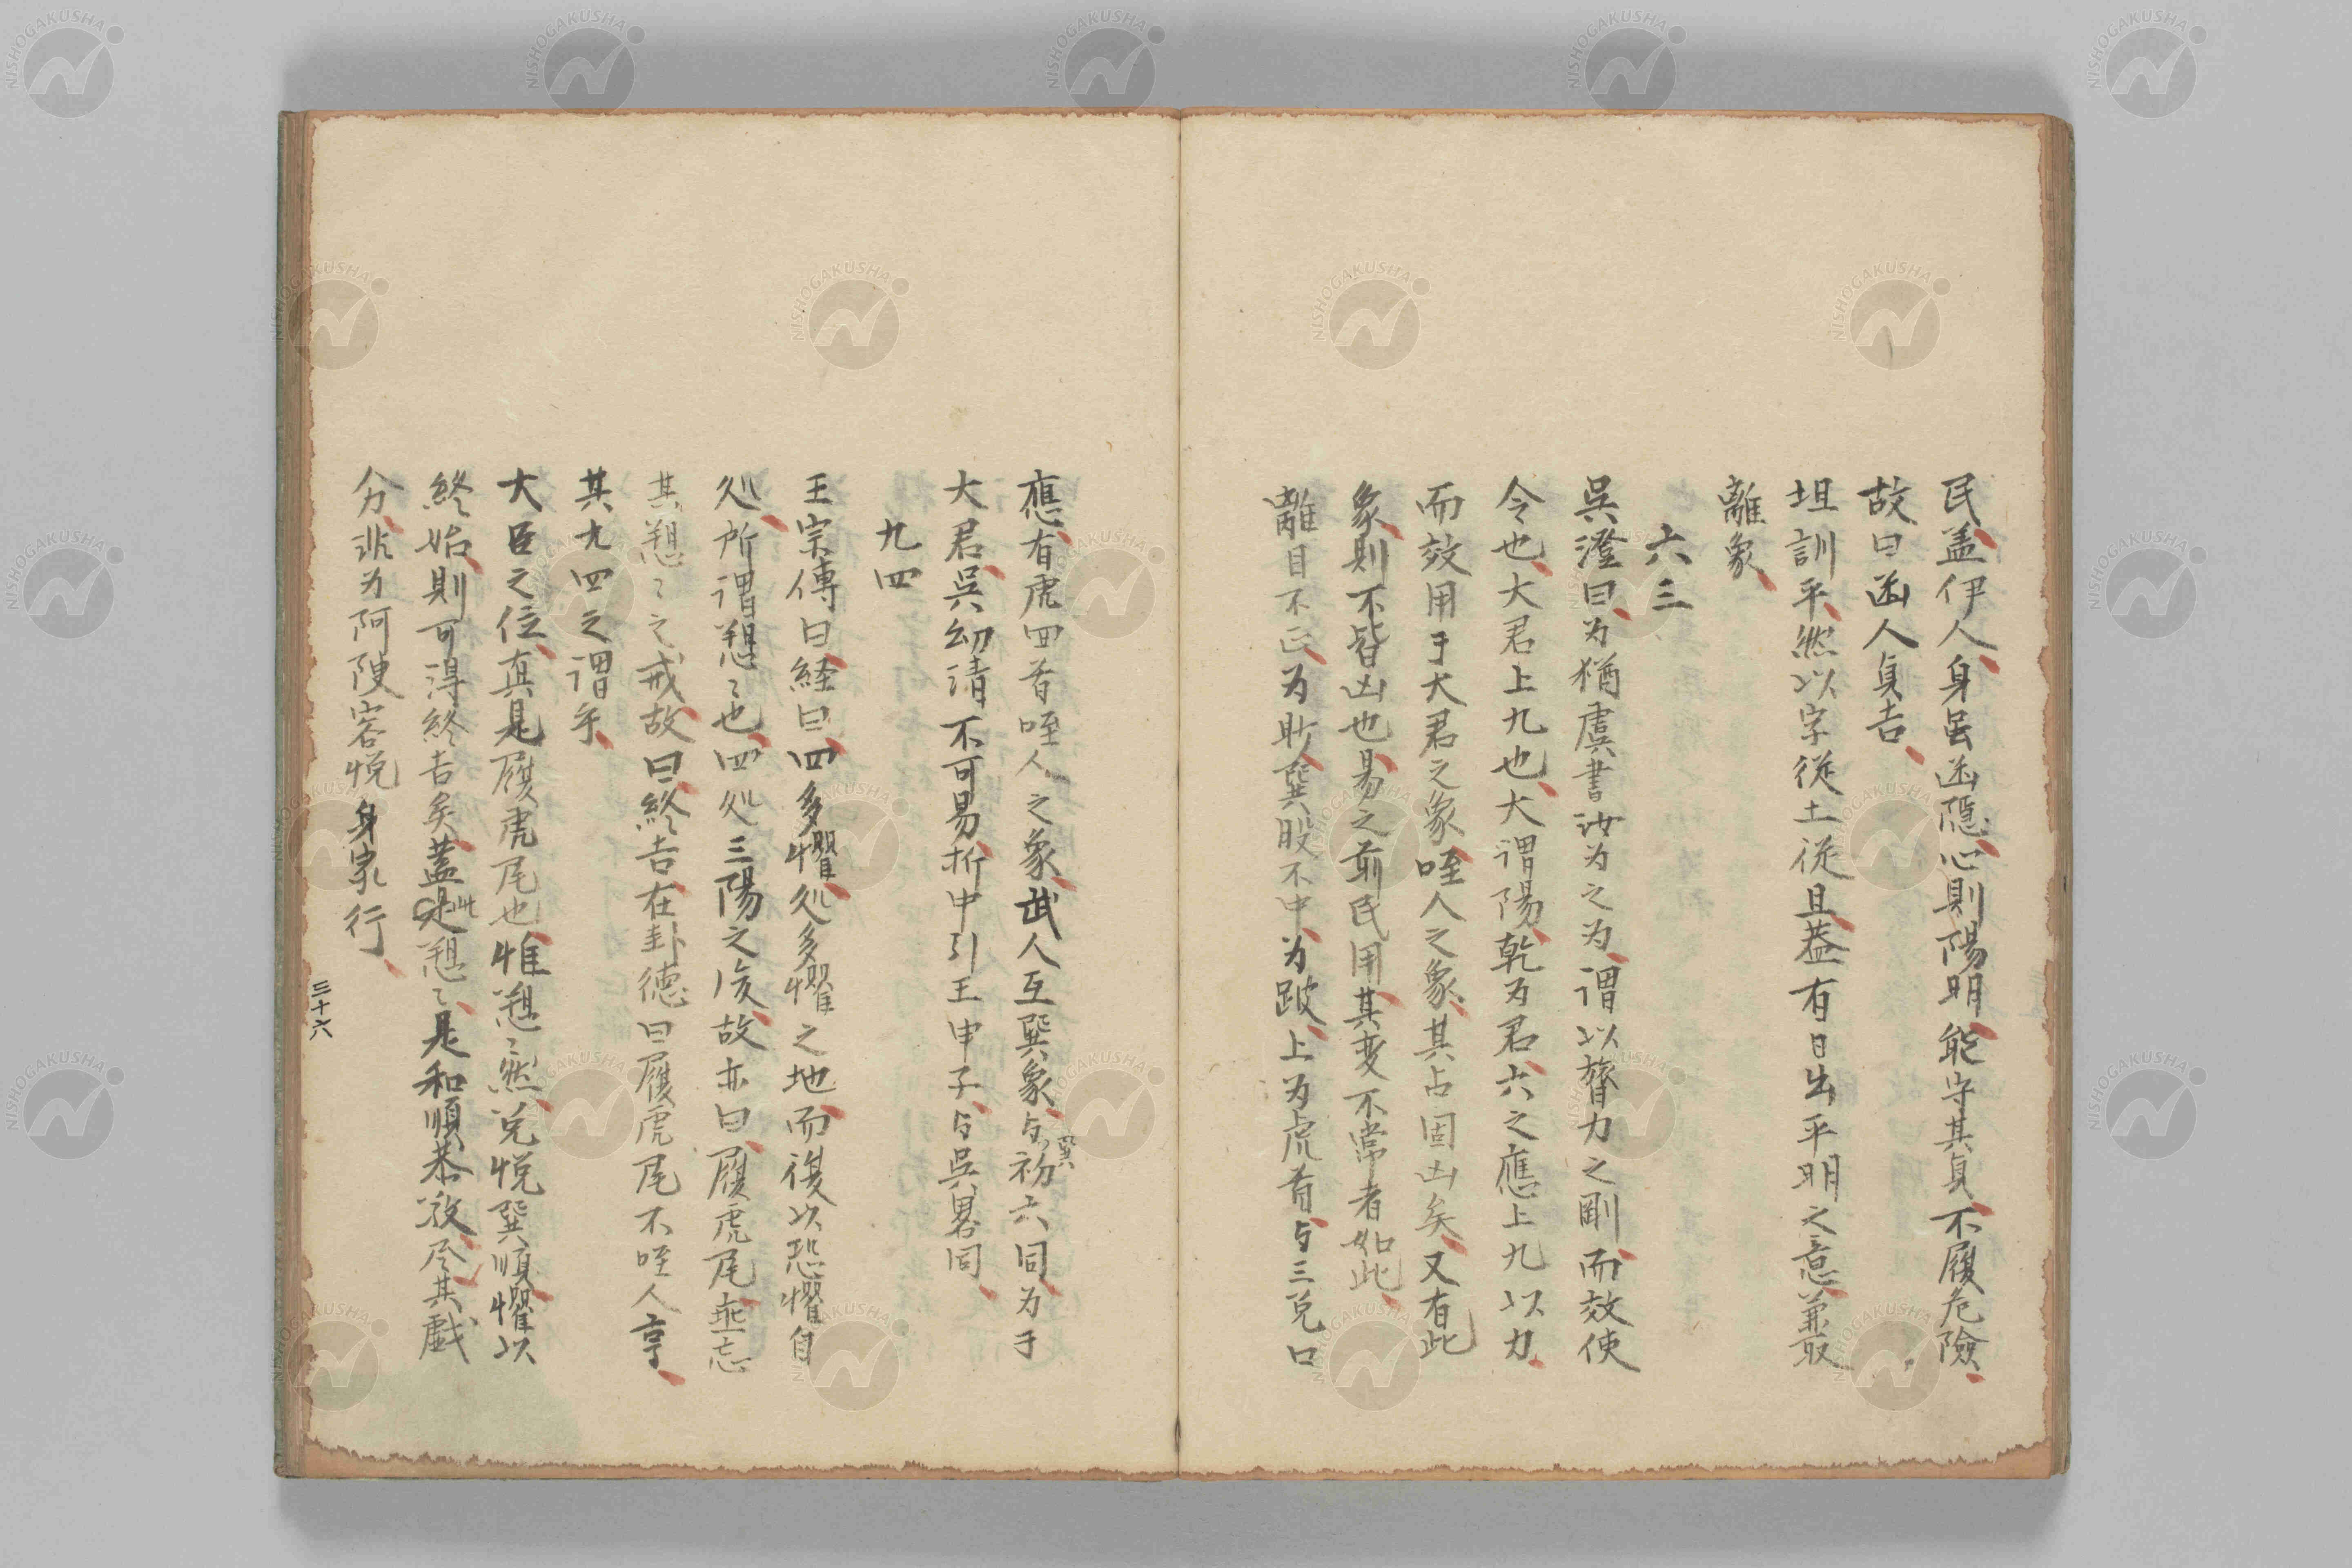 民、盖伊人、身虽幽隐、心則陽明、能守其貞、不履危險、
故曰幽人貞吉、
坦訓平、然以字從土從旦、葢有日出平明之意、兼取
離象、
六三
吳澄曰、为猶虞書汝为之为、謂以膂力之剛、而效使
令也、大君上九也、大謂陽、乾为君、六之應上九以力、
而效用于大君之象、咥人之象、其占固凶矣、又有此
象、則不皆凶也、易之前民用、其変不常者如此、
離目不正、为眇、巽股不中、为跛、上为虎首、与三兌口
應、有虎四首咥人之象、武人互巽象、与巽初六同、为于
大君、吳幼清不可易、折中引王申子、与吳畧同、
九四
王宗傳曰、経曰、四多懼、処多懼之地、而復以恐懼自
処、所謂愬〻也、四処三陽之後、故亦曰、履虎尾、垂忘
其愬〻之戒、故曰、終吉、在卦德曰履虎尾不咥人亨、
其九四之謂乎、
大臣之位、真是履虎尾也、惟愬〻然、兌悦巽順、懼以
終始、則可淂終吉矣、蓋此愬〻、是和順恭敬、尽其戲
分、非为阿陝容悦身家行、
三十六
NISHOGAKUSHA